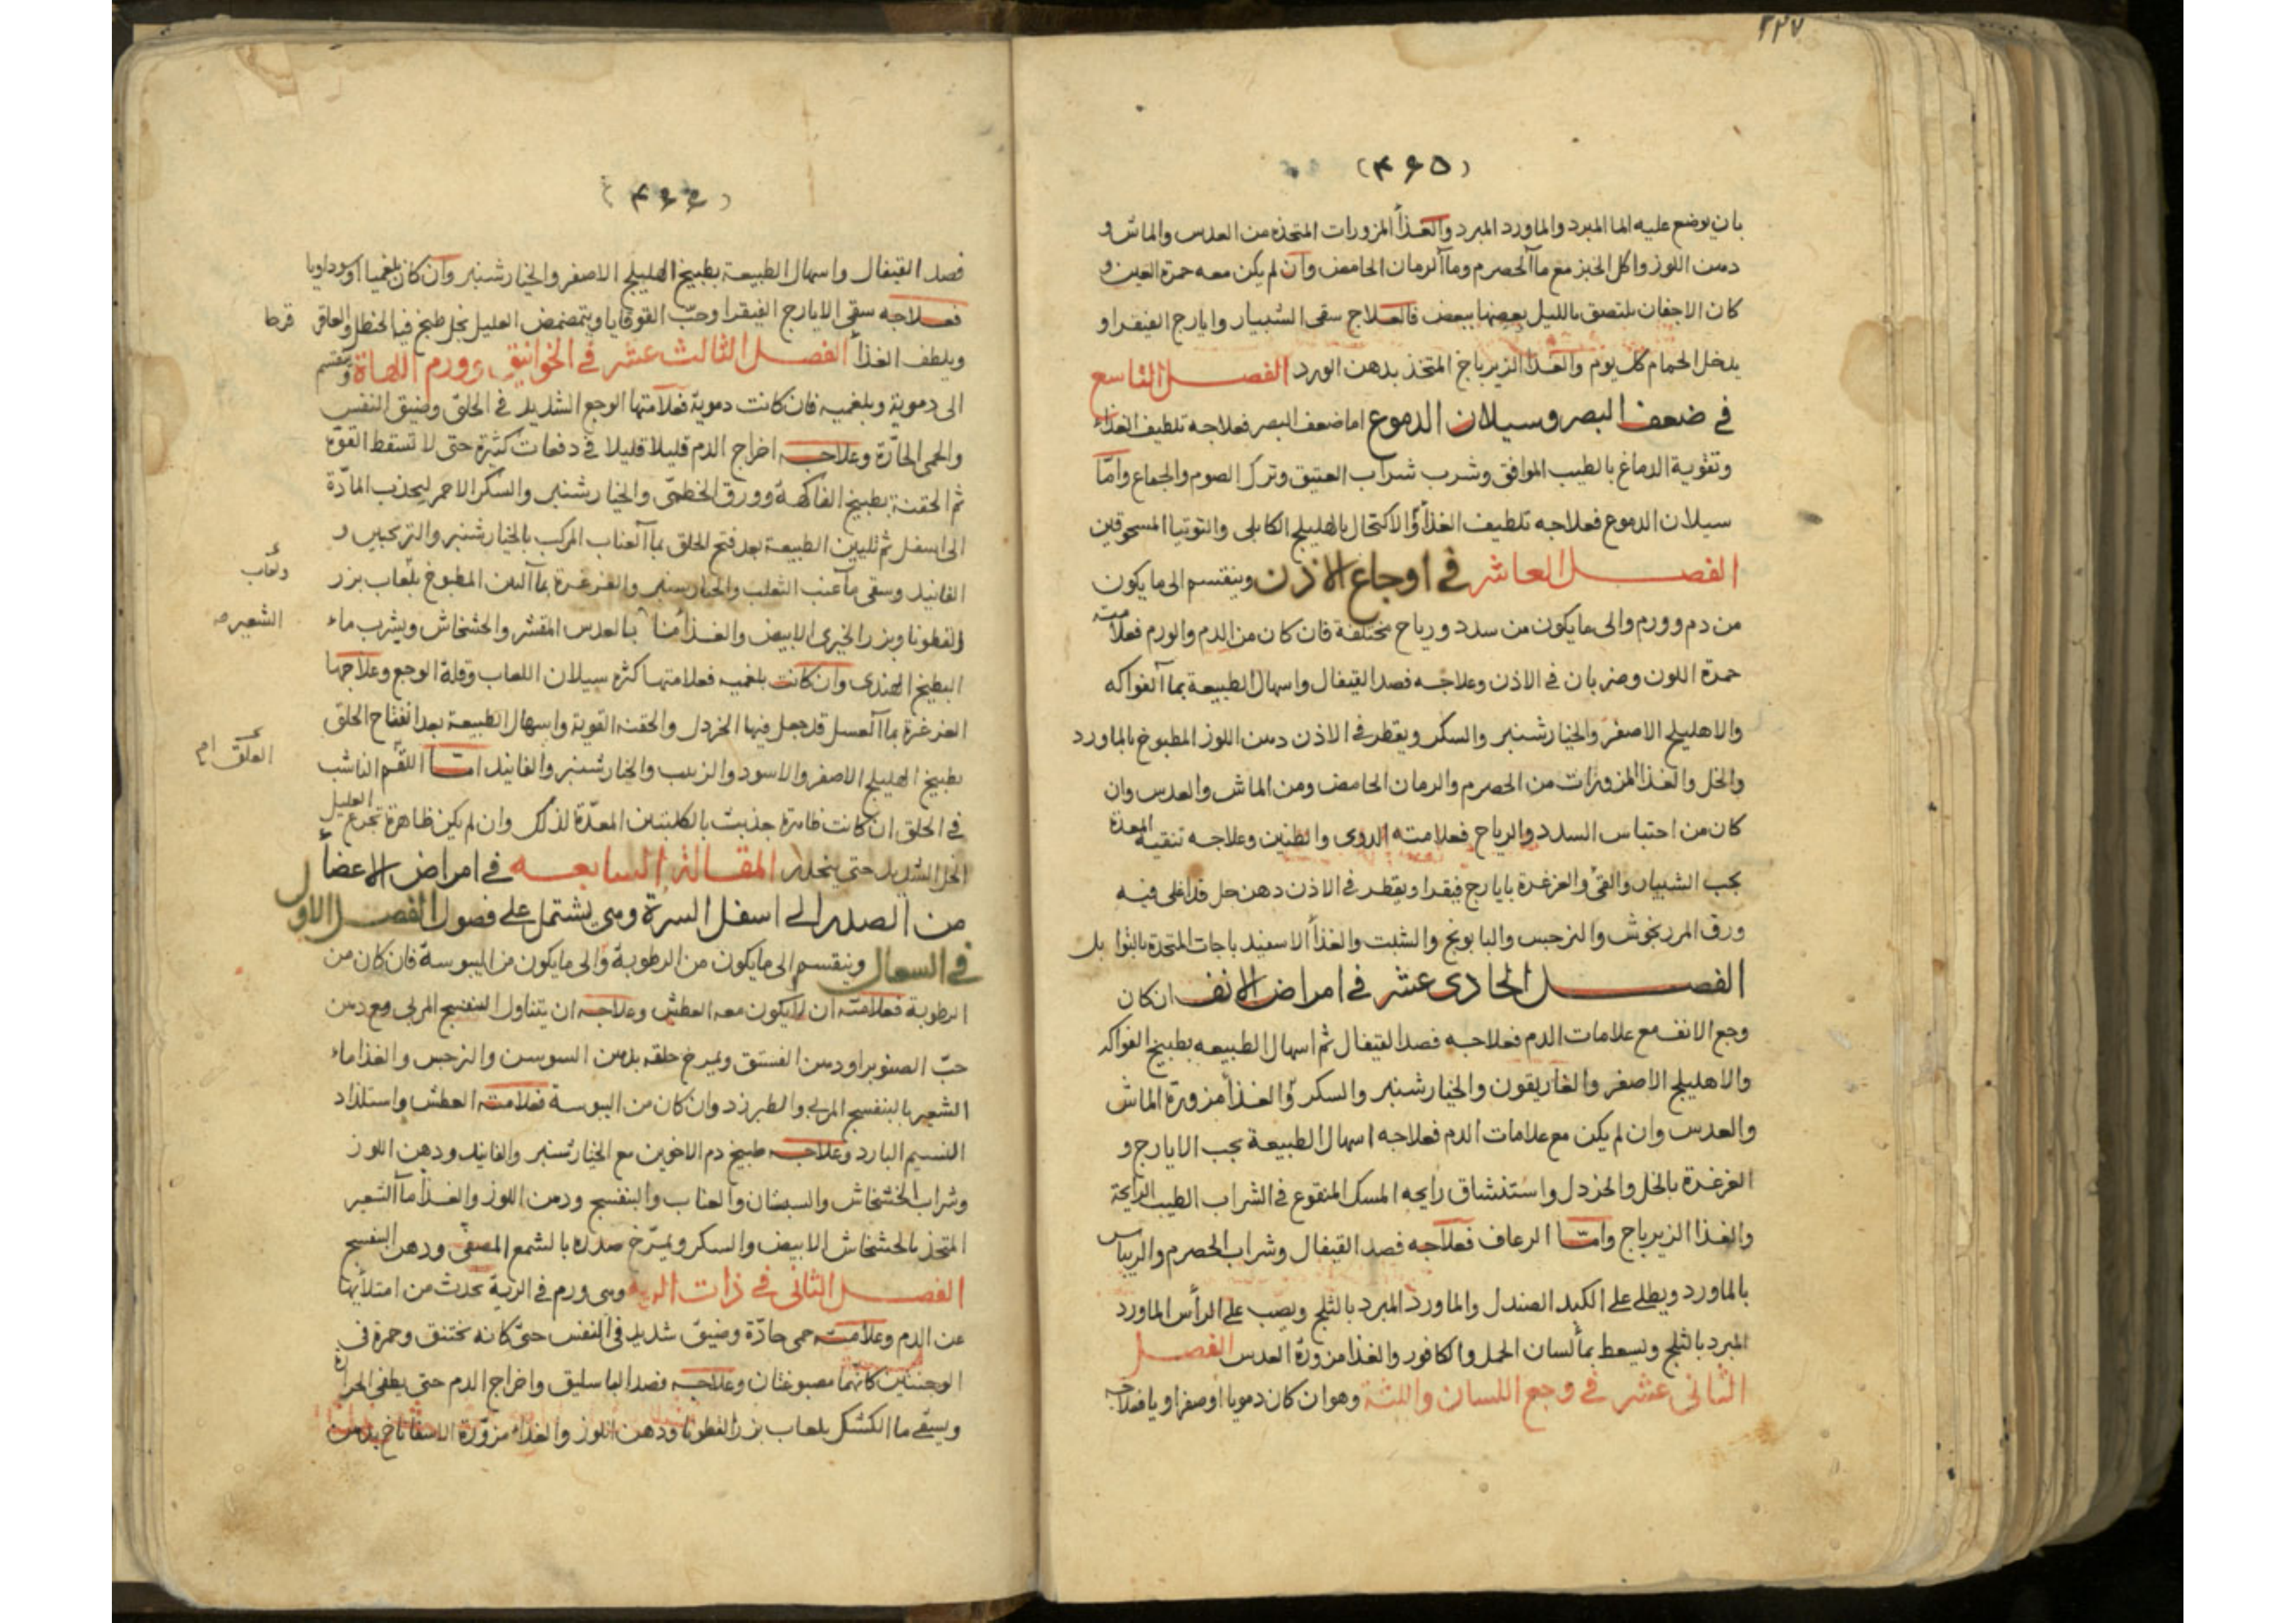 ۲۳۷
(۴۶۵)
بان يوضع عليه الما المبرد والماورد المبرد والغذأ المزورات المتخذه من العدس والماش و
دهن اللوز واكل الخبز مع مآ الحصرم ومآ الرمان الحامض وان لم يكن معه حمرة العين و
كان الاجفان يلتصق بالليل بعضها ببعض فالعلاج سقى الشبيار وايارج الفيقرا و
يدخل الحمام كل يوم والغذا الزيرباج المتخذ بدهن الورد الفصل التاسع
فى ضعف البصر وسيلان الدموع اما ضعف البصر فعلاجه تلطيف الغذاء
وتقوية الدماغ بالطيب الموافق وشرب شراب العتيق وترك الصوم والجماع وامّا
سيلان الدموع فعلاجه تلطيف الغذأ والاكتحال بالهليلج الكابلى والتوتيا المسحوقين
الفصل العاشر فى اوجاع الاذن وينقسم الى ما يكون
من دم وورم والى ما يكون من سدد ورياح مختلفة فان كان من الدم والورم فعلامته
حمرة اللون وضربان فى الاذن وعلاجه فصد القيفال واسهال الطبيعة بمآ الفواكه
والاهليلج الاصفر والخيارشنبر والسكر ويقطر فى الاذن دهن اللوز المطبوخ بالماورد
والخل والغذا المزورات من الحصرم والرمان الحامض ومن الماش والعدس وان
كان من احتباس السدد والرياح فعلامته الدوى والطنين وعلاجه تنقية المعدة
بحب الشبيار والقئ والغرغرة بايارج فيقرا ويقطر فى الاذن دهن حل قد اغلى فيه
ورق المرزنجوش والنرجس والبابونج والشبت والغذأ الاسفيد باجات المتخذة بالتوابل
الفصل الحادى عشر فى امراض الانف ان كان
وجع الانف مع علامات الدم فعلاجه فصد القيفال ثم اسهال الطبيعه بطبيخ الفواكه
والاهليلج الاصفر والغاريقون والخيارشنبر والسكر والغذأ مزورة الماش
والعدس وان لم يكن مع علامات الدم فعلاجه اسهال الطبيعة بحب الايارج و
الغرغرة بالخل والخردل واستنشاق رايحه المسك المنقوع فى الشراب الطيب الرايحة
والغذا الزيرباج وامّا الرعاف فعلاجه فصد القيفال وشراب الحصرم والريباس
بالماورد ويطلى على الكبد الصندل والماورد المبرد بالثلج ويصب على الرأس الماورد
المبرد بالثلج ويسعط بمأ لسان الحمل والكافور والغذا مزورة العدس الفصل
الثانى عشر فى وجع اللسان واللثة وهو ان كان دمويا اوصفراويا فعلاجه
(۴۶۶)
فصد القيفال واسهال الطبيعة بطبيخ الهليلج الاصفر والخيارشنبر وان كان بلغميا اوسوداويا
فعلاجه سقى الايارج الفيقرا وحبّ القوقايا ويتمضمض العليل بخل طبخ فيه الحنظل والعاقر قرحا
ويلطف الغذأ الفصل الثالث عشر فى الخوانيق وورم اللهاة وينقسم
الى دموية وبلغميه فان كانت دموية فعلامتها الوجع الشديد فى الحلق وضيق النفس
والحمى الحارّة وعلاجه اخراج الدم قليلا قليلا فى دفعات كثيرة حتى لا تسقط القوّة
ثم الحقنة بطبيخ الفاكهة وورق الخطمى والخيارشنبر والسكر الاحمر ليجذب المادّة
الى اسفل ثم تليين الطبيعة بعد فتح الحلق بمآ العناب المركب بالخيارشنبر والترنجبين و
الفانيد وسقى مآ عنب الثعلب والخيارشنبر والغرغرة بمآ التين المطبوخ بلعاب بزر
ولعاب
القطونا وبزر الخيرى الابيض والغذأ منا بالعدس المقشر والخشخاش ويشرب ماء
الشعير صه
البطيخ الهندى وان كانت بلغميه فعلامتها كثره سيلان اللعاب وقلة الوجع وعلاجها
الغرغرة بمآ العسل قد جعل فيها الخردل والحقنه القوية واسهال الطبيعة بعد انفتاح الحلق
بطبيخ الهليلج الاصفر والاسود والزبيب والخيارشنبر والفانيد امّا اللقم الناشب
العلق
فى الحلق ان كانت ظاهرة جذبت بالكلبتين المعدّة لذلك وان لم يكن ظاهرة تجرع العليل
الخل الشديد حتى ينحدر المقالة السابعه فى امراض الاعضأ
من الصدر الى اسفل السرة وهى يشتمل على فصول الفصل الاول
فى السعال وينقسم الى ما يكون من الرطوبة والى ما يكون من اليبوسة فان كان من
الرطوبة فعلامته ان لايكون معه العطش وعلاجه ان يتناول البنفسج المربى مع دهن
حبّ الصنوبر اودهن الفستق ويمرخ حلقه بدهن السوسن والنرجس والغذا ماء
الشعير بالبنفسج المربى والطبرزد وان كان من اليبوسة فعلامته العطش واستلذاد
النسيم البارد وعلاجه طبيخ دم الاخوين مع الخيارشنبر والفانيد ودهن اللوز
وشراب الخشخاش والسبستان والعناب والبنفسج ودهن اللوز والغذأ مآ الشعير
المتخذ بالخشخاش الابيض والسكر ويمرّخ صدره بالشمع المصفى ودهن البنفسج
الفصل الثانى فى ذات الريه وهى ورم فى الرية تحدث من امتلأيها
عن الدم وعلامته حمى حادّة وضيق شديد فى النفس حتى كانه يختنق وحمرة فى
الوجنتين كانهما مصبوغتان وعلاجه فصد الباسليق واخراج الدم حتى يطفى الحرارة
ويسقى ما الكشك بلعاب بزر القطونا ودهن اللوز والغذاء مزورة الاسفاناخ بدهن